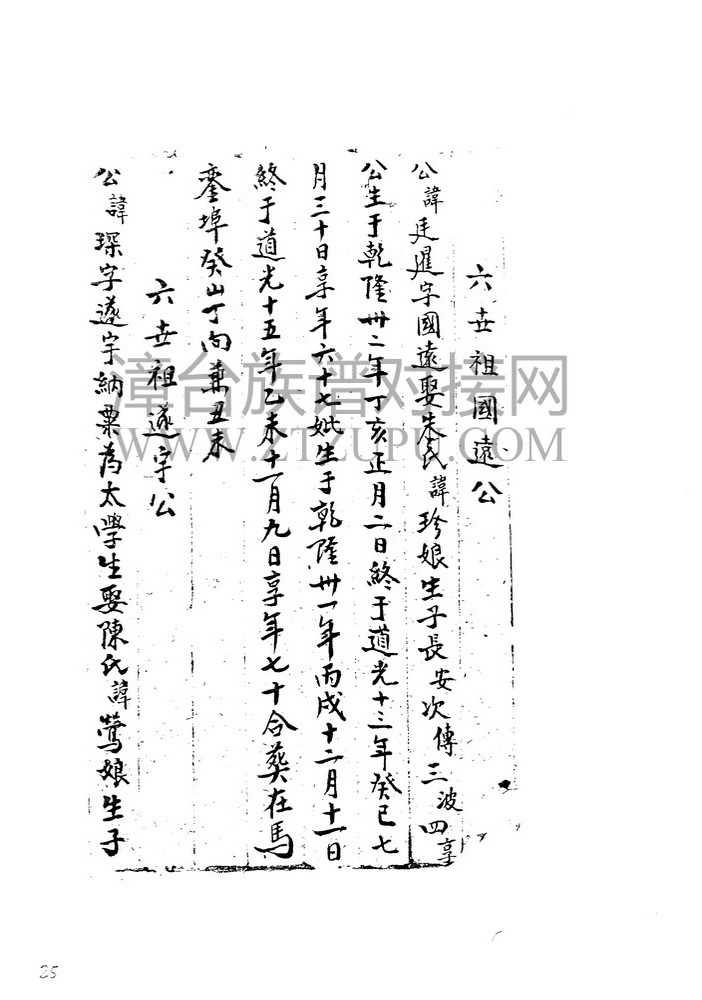 六世祖國遠公
公諱廷暹字國遠娶朱氏諱珍娘生子長安次傳三波四享
公生于乾隆卅二年丁亥正月二日終于道光十三年癸巳七
月三十日享年六十七妣生于乾隆卅一年丙戌十二月十一日
終于道光十五年乙未十一月九日享年七十合葬在馬
埠癸山丁向兼丑未
六世祖遂宇公
公諱琛字遂宇納粟為太學生娶陳氏諱鶯娘生子
漳台族谱对接网
WWW.ZTZUPU.COM
25